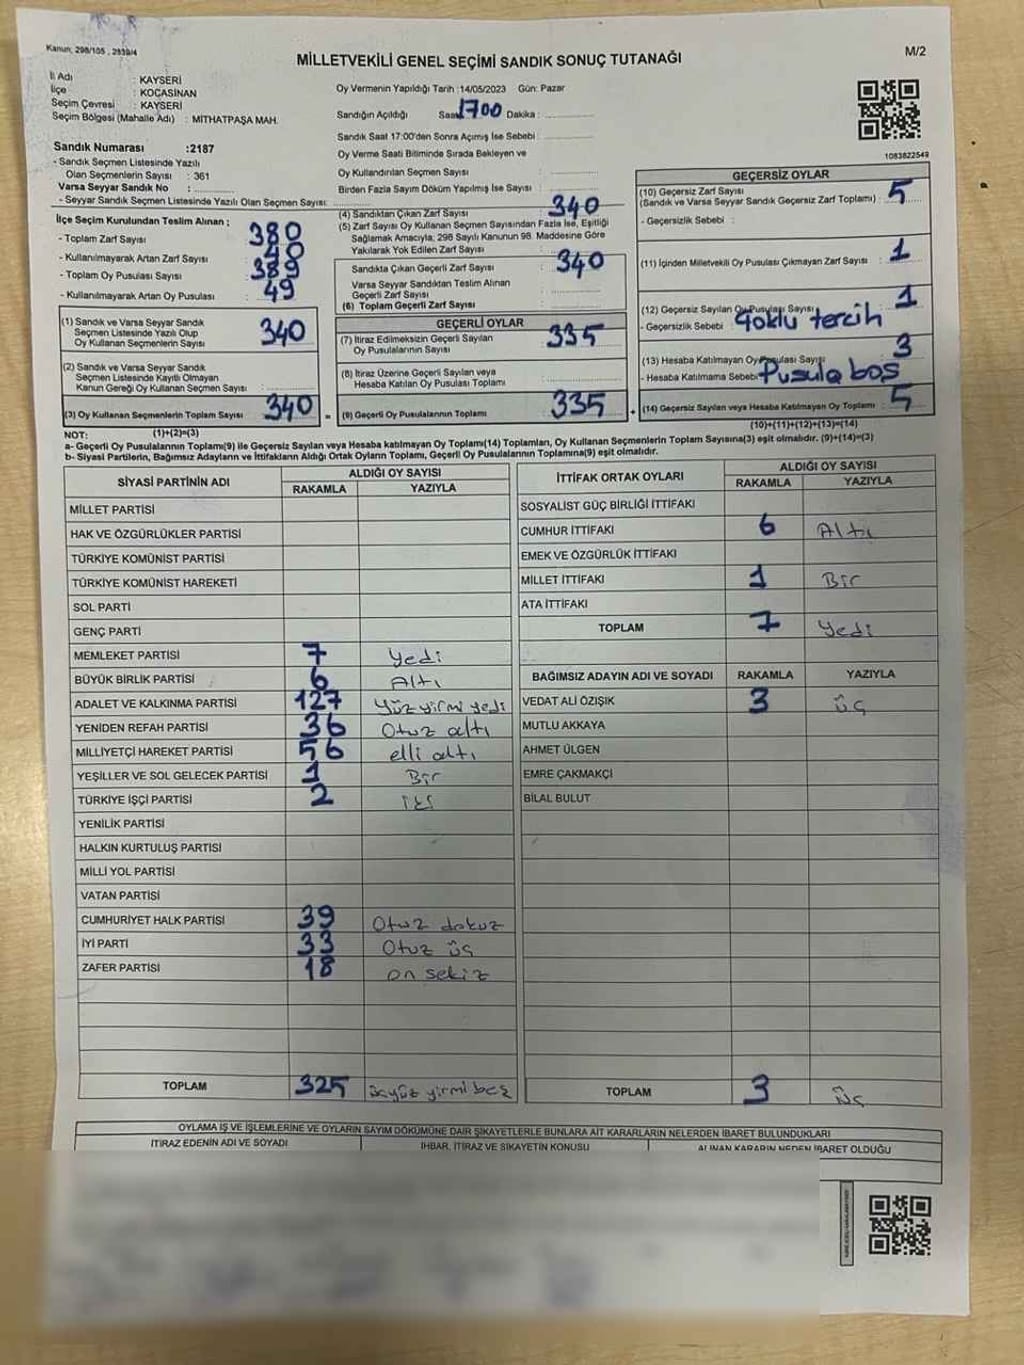 Kanun; 298/105 , 2839/4
MİLLETVEKİLİ GENEL SEÇİMİ SANDIK SONUÇ TUTANAĞI
M/2
İl Adı : KAYSERİ
İlçe : KOCASİNAN
Seçim Çevresi : KAYSERİ
Seçim Bölgesi (Mahalle Adı) : MİTHATPAŞA MAH.
Oy Vermenin Yapıldığı Tarih :14/05/2023 Gün: Pazar
Sandığın Açıldığı Saat 1700 Dakika :
Sandık Saat 17:00'den Sonra Açımış İse Sebebi :
Oy Verme Saati Bitiminde Sırada Bekleyen ve
Oy Kullandırılan Seçmen Sayısı:
Birden Fazla Sayım Döküm Yapılmış İse Sayısı :
1083822549
Sandık Numarası :2187
- Sandık Seçmen Listesinde Yazılı
Olan Seçmenlerin Sayısı : 361
Varsa Seyyar Sandık No :
- Seyyar Sandık Seçmen Listesinde Yazılı Olan Seçmen Sayısı:
İlçe Seçim Kurulundan Teslim Alınan ;
- Toplam Zarf Sayısı : 380
- Kullanılmayarak Artan Zarf Sayısı : 40
- Toplam Oy Pusulası Sayısı : 389
- Kullanılmayarak Artan Oy Pusulası : 49
(1) Sandık ve Varsa Seyyar Sandık
Seçmen Listesinde Yazılı Olup
Oy Kullanan Seçmenlerin Sayısı : 340
(2) Sandık ve Varsa Seyyar Sandık
Seçmen Listesinde Kayıtlı Olmayan
Kanun Gereği Oy Kullanan Seçmen Sayısı :
(3) Oy Kullanan Seçmenlerin Toplam Sayısı : 340
(1)+(2)=(3)
(4) Sandıktan Çıkan Zarf Sayısı : 340
(5) Zarf Sayısı Oy Kullanan Seçmen Sayısından Fazla İse, Eşitliği
Sağlamak Amacıyla; 298 Sayılı Kanunun 98. Maddesine Göre
Yakılarak Yok Edilen Zarf Sayısı :
Sandıkta Çıkan Geçerli Zarf Sayısı : 340
Varsa Seyyar Sandıktan Teslim Alınan
Geçerli Zarf Sayısı :
(6) Toplam Geçerli Zarf Sayısı :
GEÇERLİ OYLAR
(7) İtiraz Edilmeksizin Geçerli Sayılan
Oy Pusulalarının Sayısı : 335
(8) İtiraz Üzerine Geçerli Sayılan veya
Hesaba Katılan Oy Pusulası Toplamı :
= (9) Geçerli Oy Pusulalarının Toplamı : 335
GEÇERSİZ OYLAR
(10) Geçersiz Zarf Sayısı
(Sandık ve Varsa Seyyar Sandık Geçersiz Zarf Toplamı) : 5
- Geçersizlik Sebebi :
(11) İçinden Milletvekili Oy Pusulası Çıkmayan Zarf Sayısı : 1
(12) Geçersiz Sayılan Oy Pusulası Sayısı : 1
- Geçersizlik Sebebi : Çoklu tercih
(13) Hesaba Katılmayan Oy Pusulası Sayısı : 3
- Hesaba Katılmama Sebebi : Pusula boş
+ (14) Geçersiz Sayılan veya Hesaba Katılmayan Oy Toplamı : 5
(10)+(11)+(12)+(13)=(14)
NOT:
a- Geçerli Oy Pusulalarının Toplamı(9) ile Geçersiz Sayılan veya Hesaba katılmayan Oy Toplamı(14) Toplamları, Oy Kullanan Seçmenlerin Toplam Sayısına(3) eşit olmalıdır. (9)+(14)=(3)
b- Siyasi Partilerin, Bağımsız Adayların ve İttifakların Aldığı Ortak Oyların Toplamı, Geçerli Oy Pusulalarının Toplamına(9) eşit olmalıdır.
SİYASİ PARTİNİN ADI ALDIĞI OY SAYISI
RAKAMLA YAZIYLA
MİLLET PARTİSİ
HAK VE ÖZGÜRLÜKLER PARTİSİ
TÜRKİYE KOMÜNİST PARTİSİ
TÜRKİYE KOMÜNİST HAREKETİ
SOL PARTİ
GENÇ PARTİ
MEMLEKET PARTİSİ 7 Yedi
BÜYÜK BİRLİK PARTİSİ 6 Altı
ADALET VE KALKINMA PARTİSİ 127 Yüz yirmi yedi
YENİDEN REFAH PARTİSİ 36 Otuz altı
MİLLİYETÇİ HAREKET PARTİSİ 56 elli altı
YEŞİLLER VE SOL GELECEK PARTİSİ 1 Bir
TÜRKİYE İŞÇİ PARTİSİ 2 iki
YENİLİK PARTİSİ
HALKIN KURTULUŞ PARTİSİ
MİLLİ YOL PARTİSİ
VATAN PARTİSİ
CUMHURİYET HALK PARTİSİ 39 Otuz dokuz
İYİ PARTİ 33 Otuz üç
ZAFER PARTİSİ 18 on sekiz
TOPLAM 325 üçyüz yirmi beş
İTTİFAK ORTAK OYLARI ALDIĞI OY SAYISI
RAKAMLA YAZIYLA
SOSYALİST GÜÇ BİRLİĞİ İTTİFAKI
CUMHUR İTTİFAKI 6 Altı
EMEK VE ÖZGÜRLÜK İTTİFAKI
MİLLET İTTİFAKI 1 Bir
ATA İTTİFAKI
TOPLAM 7 Yedi
BAĞIMSIZ ADAYIN ADI VE SOYADI RAKAMLA YAZIYLA
VEDAT ALİ ÖZIŞIK 3 üç
MUTLU AKKAYA
AHMET ÜLGEN
EMRE ÇAKMAKÇI
BİLAL BULUT
TOPLAM 3 üç
OYLAMA İŞ VE İŞLEMLERİNE VE OYLARIN SAYIM DÖKÜMÜNE DAİR ŞİKAYETLERLE BUNLARA AİT KARARLARIN NELERDEN İBARET BULUNDUKLARI
İTİRAZ EDENİN ADI VE SOYADI İHBAR, İTİRAZ VE ŞİKAYETİN KONUSU ALINAN KARARIN NEDEN İBARET OLDUĞU